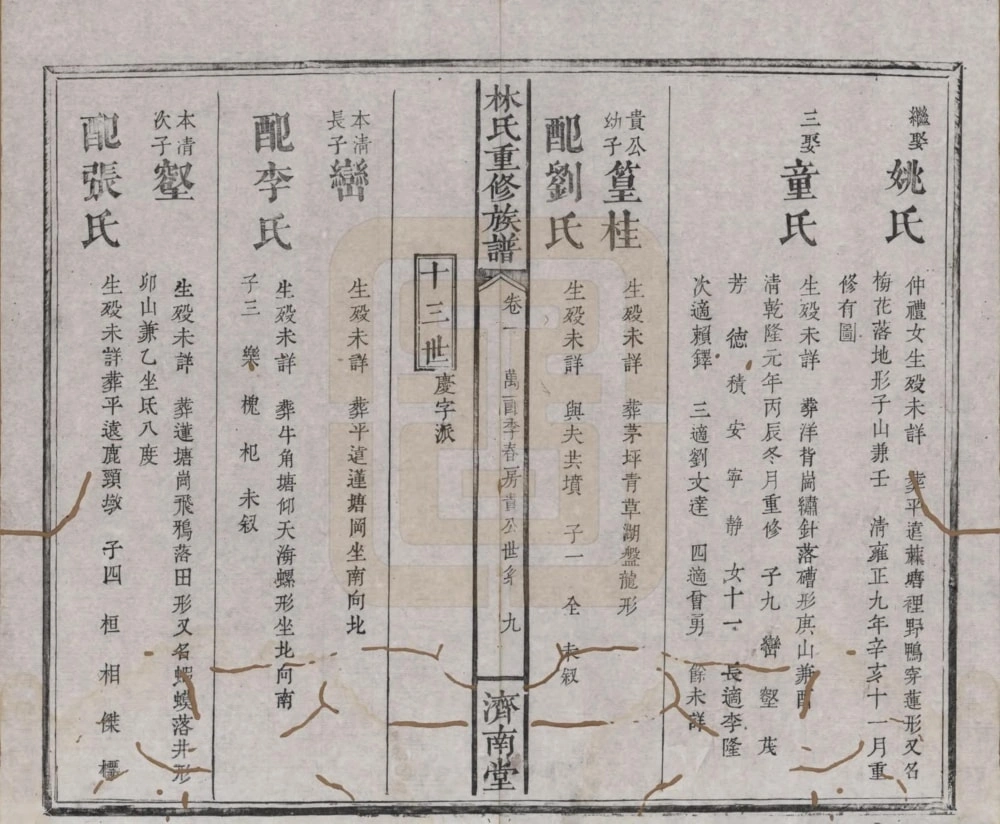 繼娶
姚氏
仲禮女生歿未詳 葬平遠蔴塘裡野鴨穿蓮形又名
梅花落地形子山兼壬 清雍正九年辛亥十一月重
修有圖
三娶
童氏
生歿未詳 葬洋背崗繡針落磹形庚山兼酉
清乾隆元年丙辰冬月重修 子九 巒 壑 茂
芳 德 積 安 寧 靜 女十一 長適李隆
次適賴鐸 三適劉文達 四適曾勇 餘未詳
貴公
幼子
篁桂
生歿未詳 葬茅坪青草湖盤龍形
配劉氏
生歿未詳 與夫共墳 子一 全 未叙
林氏重修族譜
卷一
萬酉季春房貴公世系 九
濟南堂
十三世
慶字派
本清
長子
巒
生歿未詳 葬平遠蓮塘岡坐南向北
配李氏
生歿未詳 葬牛角塘仰天海螺形坐北向南
子三 樂 槐 杞 未叙
本清
次子
壑
生歿未詳 葬蓮塘崗飛鴉落田形又名蝦蟆落井形
卯山兼乙坐氐八度
配張氏
生歿未詳葬平遠鹿頸墩 子四 桓 相 傑 標